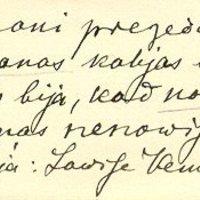 oni prezeda
anas kabjas
bija, kad no
nas nenowij
ja: Lawise Vem